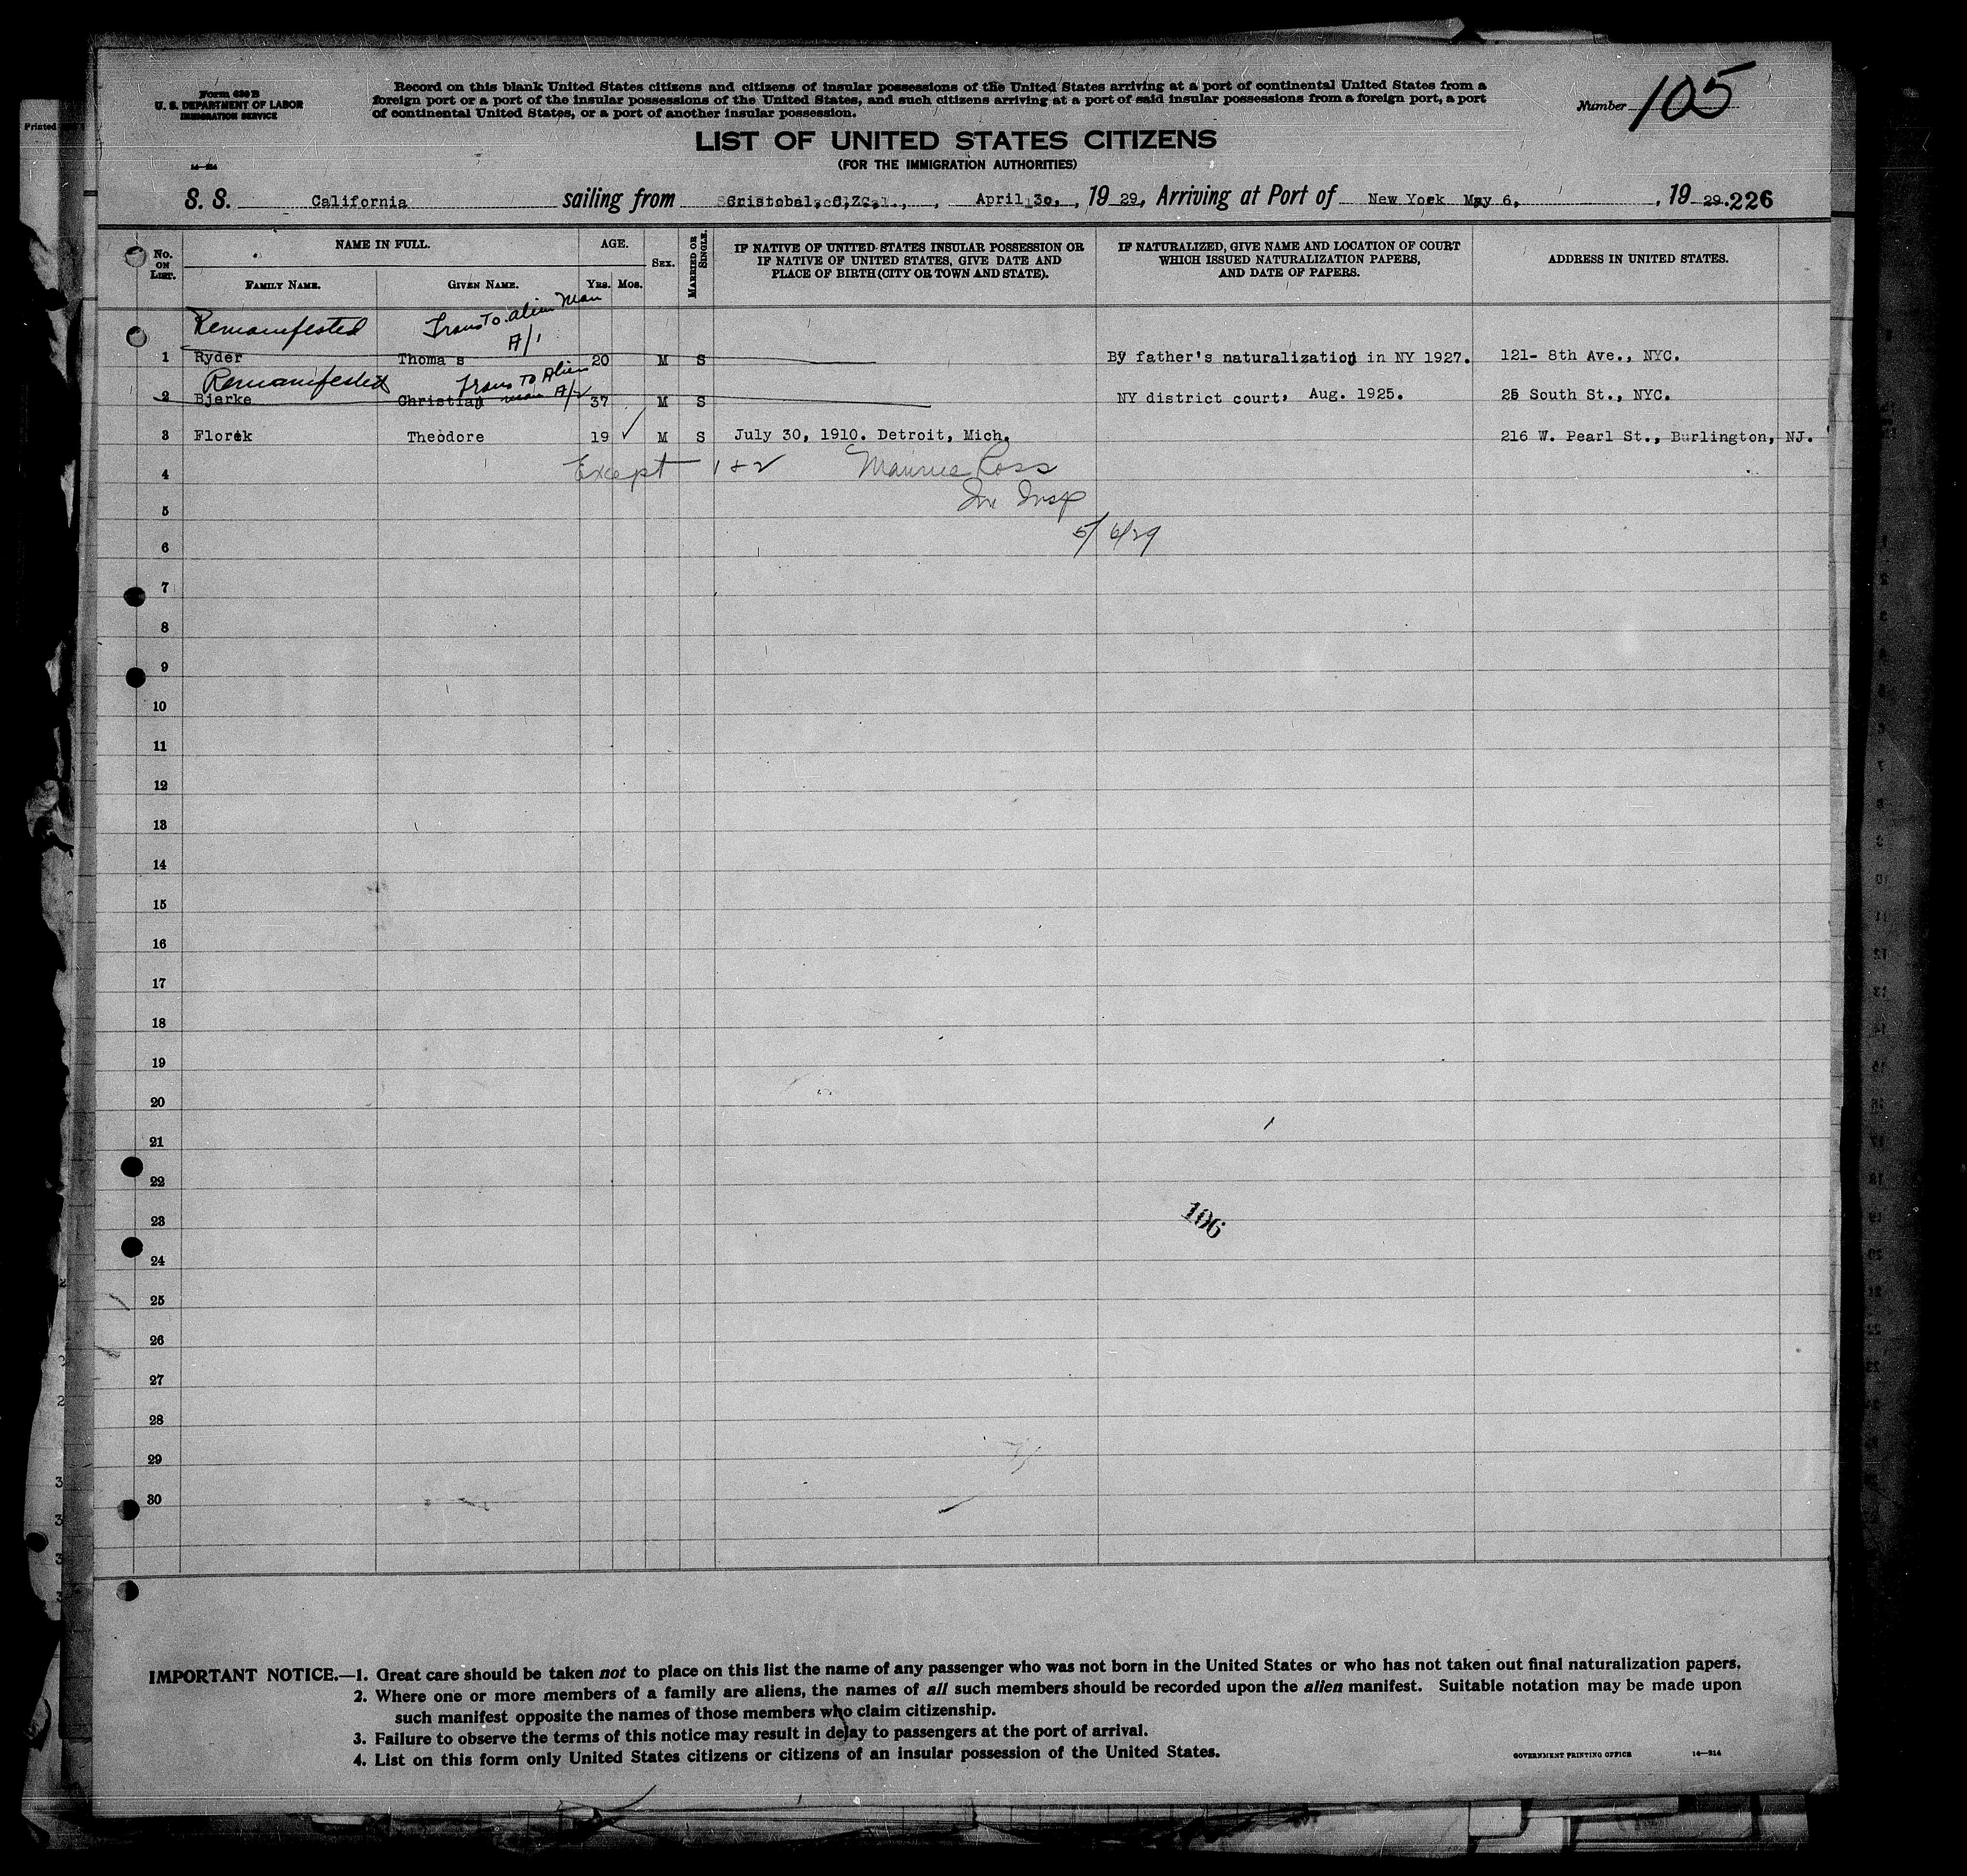 Printed
Form 630 B
U. S. DEPARTMENT OF LABOR
IMMIGRATION SERVICE
14—214
Record on this blank United States citizens and citizens of insular possessions of the United States arriving at a port of continental United States from a
foreign port or a port of the insular possessions of the United States, and such citizens arriving at a port of said insular possessions from a foreign port, a port
of continental United States, or a port of another insular possession.
Number 105
LIST OF UNITED STATES CITIZENS
(FOR THE IMMIGRATION AUTHORITIES)
S. S. California sailing from Cristobal, C,Z., April 30, 19 29, Arriving at Port of New York May 6, , 19 29. 226
No. ON LIST. NAME IN FULL. AGE. SEX. MARRIED OR SINGLE. IF NATIVE OF UNITED STATES INSULAR POSSESSION OR IF NATIVE OF UNITED STATES, GIVE DATE AND PLACE OF BIRTH (CITY OR TOWN AND STATE). IF NATURALIZED, GIVE NAME AND LOCATION OF COURT WHICH ISSUED NATURALIZATION PAPERS, AND DATE OF PAPERS. ADDRESS IN UNITED STATES.
FAMILY NAME. GIVEN NAME. YRS. MOS.
Remanifested Trans To alien Man
A/1
1 Ryder Thoma s 20 M S By father's naturalization in NY 1927. 121- 8th Ave., NYC.
Remanifested Trans To Alien
man A/2
2 Bjerke Christian 37 M S NY district court, Aug. 1925. 25 South St., NYC.
3 Florek Theodore 19 ✓ M S July 30, 1910. Detroit, Mich. 216 W. Pearl St., Burlington, NJ.
4 Except 1 & 2 Maurice Ross
Im Insp
5
5/6/29
6
7
8
9
10
11
12
13
14
15
16
17
18
19
20
21
22
23
106
24
25
26
27
28
29
30
IMPORTANT NOTICE.—1. Great care should be taken not to place on this list the name of any passenger who was not born in the United States or who has not taken out final naturalization papers.
2. Where one or more members of a family are aliens, the names of all such members should be recorded upon the alien manifest. Suitable notation may be made upon
such manifest opposite the names of those members who claim citizenship.
3. Failure to observe the terms of this notice may result in delay to passengers at the port of arrival.
4. List on this form only United States citizens or citizens of an insular possession of the United States.
GOVERNMENT PRINTING OFFICE 14—214